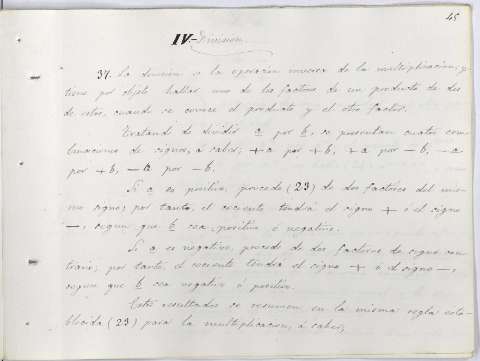 45
IV.- Division
37. La division es la operacion inversa de la multiplicacion, y
tiene por objeto hallar uno de los factores de un producto de dos
de estos, cuando se conoce el producto y el otro factor.
Tratando de dividir a por b, se presentan cuatro com-
binaciones de signos, á saber; +a por +b, +a por -b, -a
por +b, -a por -b.
Si a es positivo, procede (23) de dos factores del mis-
mo signo; por tanto, el cociente tendrá el signo + ó el signo
-, segun que b sea positivo ó negativo.
Si a es negativo, procede de dos factores de signo con-
trario; por tanto, el cociente tendrá el signo + ó el signo -,
segun que b sea negativo ó positivo.
Estos resultados se resumen en la misma regla esta-
blecida (23) para la multiplicacion, á saber;